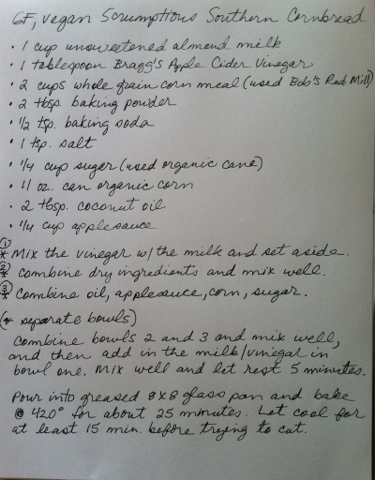 GF, vegan Scrumptious Southern Cornbread
• 1 cup unsweetened almond milk
• 1 tablespoon Bragg's Apple Cider Vinegar
• 2 cups whole grain corn meal (used Bob's Red Mill)
• 2 tbsp. baking powder
• 1/2 tsp. baking soda
• 1 tsp. salt
• 1/4 cup sugar (used organic cane)
• 11 oz. can organic corn
• 2 tbsp. coconut oil
• 1/4 cup applesauce
① * Mix the vinegar w/ the milk and set aside.
② * combine dry ingredients and mix well.
③ * combine oil, applesauce, corn, sugar.
(* separate bowls)
combine bowls 2 and 3 and mix well,
and then add in the milk/vinegar in
bowl one. Mix well and let rest 5 minutes.
Pour into greased 8x8 glass pan and bake
@ 420° for about 25 minutes. Let cool for
at least 15 min. before trying to cut.